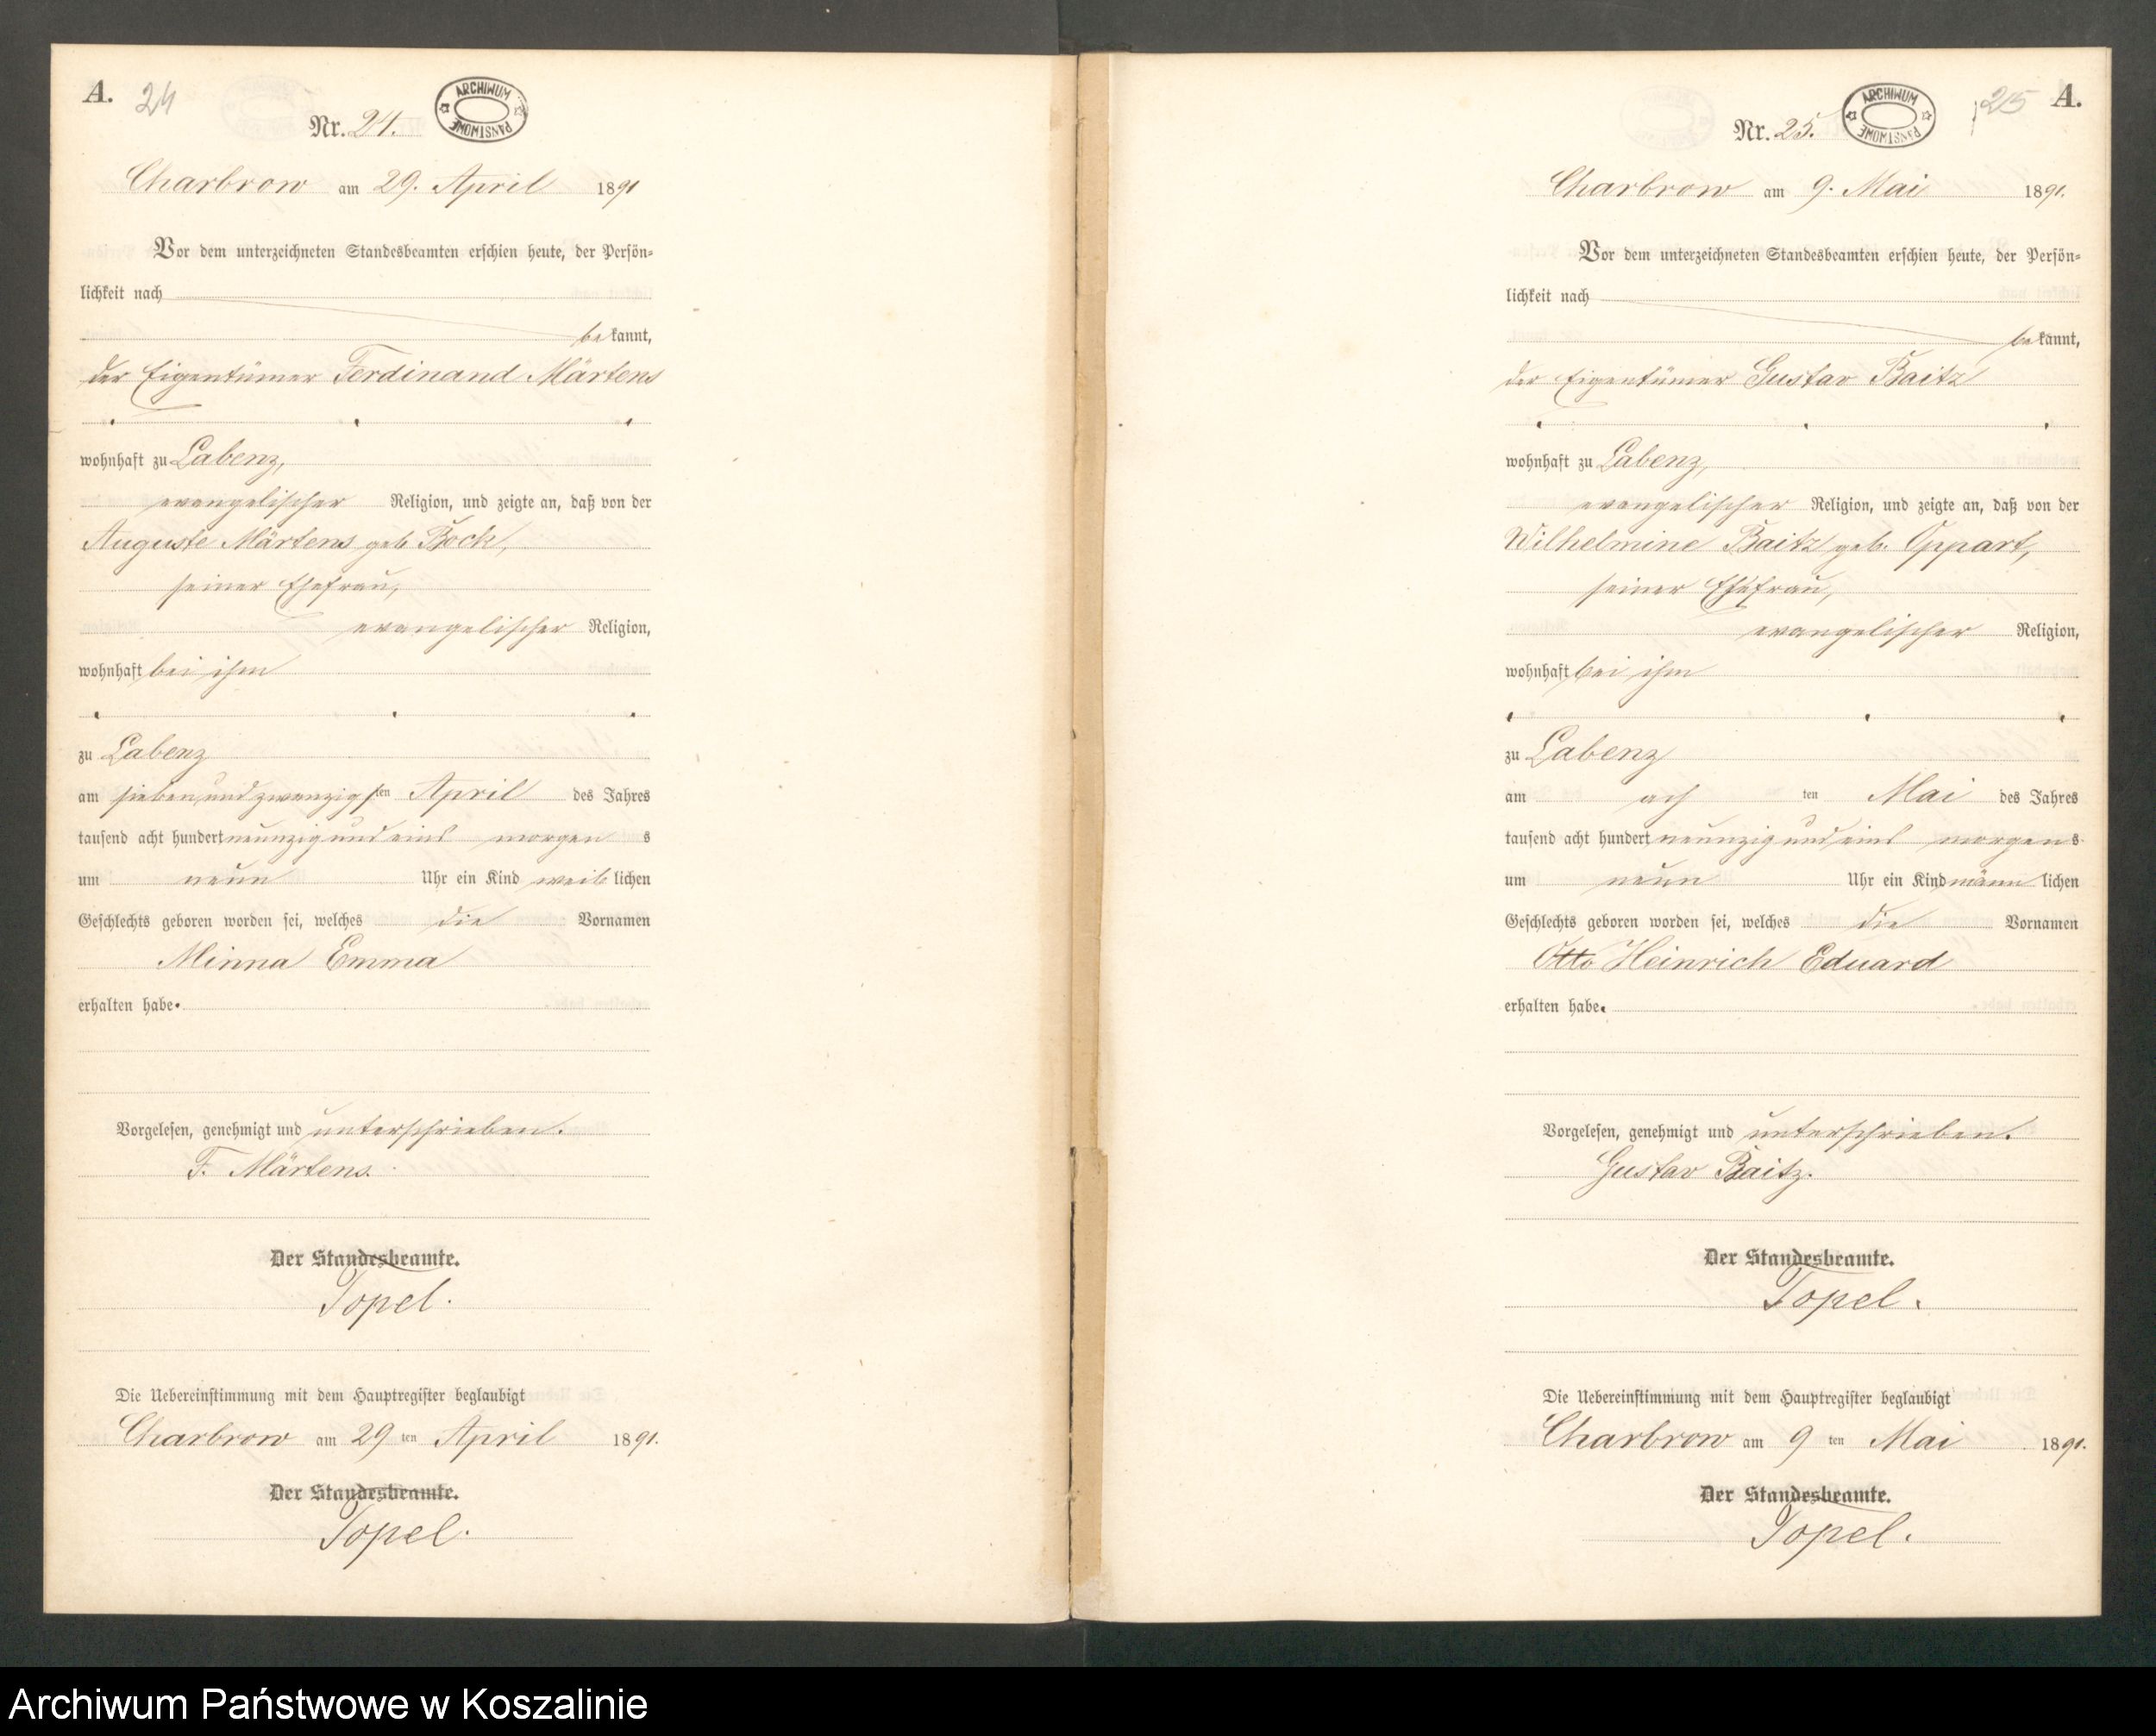 A. 24
Nr. 24.
ARCHIWUM PAŃSTWOWE
Charbrow am 29. April 1891
Vor dem unterzeichneten Standesbeamten erschien heute, der Persön-
lichkeit nach
bekannt,
der Eigentümer Ferdinand Märtens
wohnhaft zu Labenz,
evangelischer Religion, und zeigte an, daß von der
Auguste Märtens geb. Bock,
seiner Ehefrau,
evangelischer Religion,
wohnhaft bei ihm
zu Labenz
am siebenundzwanzigsten April des Jahres
tausend acht hundert neunzig und eins morgens
um neun Uhr ein Kind weiblichen
Geschlechts geboren worden sei, welches die Vornamen
Minna Emma
erhalten habe.
Vorgelesen, genehmigt und unterschrieben.
F. Märtens.
Der Standesbeamte.
Topel.
Die Uebereinstimmung mit dem Hauptregister beglaubigt
Charbrow am 29ten April 1891.
Der Standesbeamte.
Topel.
25 A.
Nr. 25.
ARCHIWUM PAŃSTWOWE
Charbrow am 9. Mai 1891.
Vor dem unterzeichneten Standesbeamten erschien heute, der Persön-
lichkeit nach
bekannt,
der Eigentümer Gustav Baitz
wohnhaft zu Labenz,
evangelischer Religion, und zeigte an, daß von der
Wilhelmine Baitz geb. Oppart,
seiner Ehefrau,
evangelischer Religion,
wohnhaft bei ihm
zu Labenz
am achten Mai des Jahres
tausend acht hundert neunzig und eins morgens
um neun Uhr ein Kind männlichen
Geschlechts geboren worden sei, welches die Vornamen
Otto Heinrich Eduard
erhalten habe.
Vorgelesen, genehmigt und unterschrieben.
Gustav Baitz.
Der Standesbeamte.
Topel.
Die Uebereinstimmung mit dem Hauptregister beglaubigt
Charbrow am 9ten Mai 1891.
Der Standesbeamte.
Topel.
Archiwum Państwowe w Koszalinie